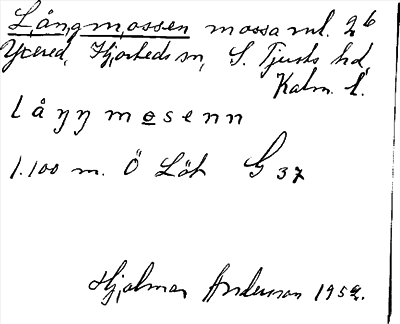 Långmossen mossa ml. 2b
Ycered, Hjorteds sn, S. Tjusts hd,
Kalm. l.
l å ŋ ŋ m o s e n n
1.100 m. Ö Löt G 37
Hjalmar Anderson 1952.